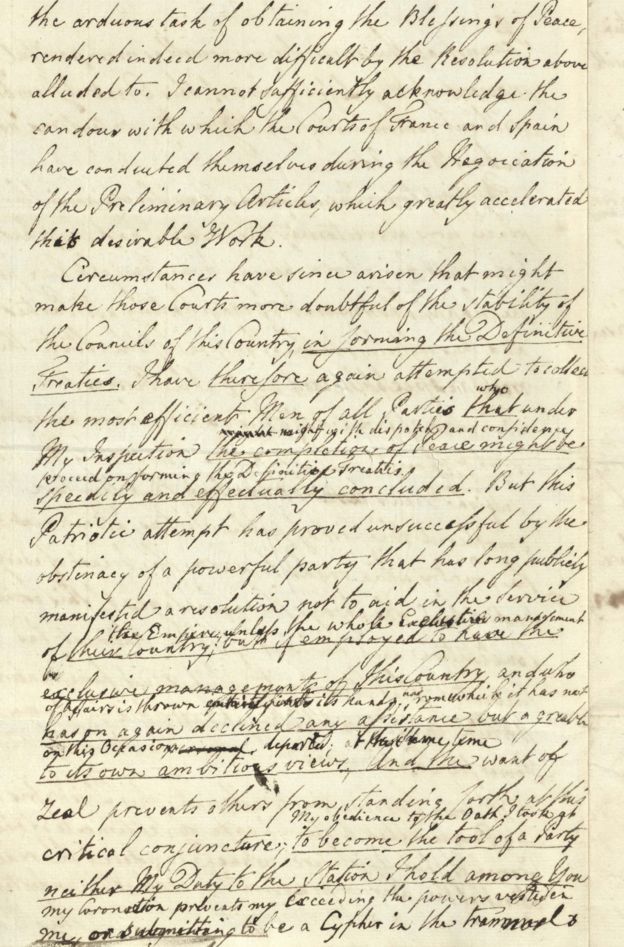 the arduous task of obtaining the Blessings of Peace,
rendered indeed more difficult by the Resolution above
alluded to. I cannot sufficiently acknowledge the
candour with which the Courts of France and Spain
have conducted themselves during the Negociation
of the Preliminary Articles, which greatly accelerated
that desirable Work.
Circumstances have since arisen that might
make those Courts more doubtful of the stability of
the Councils of this Country in forming the Definitive
Treaties. I have therefore again attempted to collect
who
the most efficient Men of all Parties that under
might with dispatch and confidence
My Inspection the completion of Peace might be
proceed on forming the Definitive Treaties
speedily and effectually concluded. But this
Patriotic attempt has proved unsuccessful by the
obstinacy of a powerful party that has long publicly
manifested a resolution not to aid in the service
the Empire unless the whole Exclusive management
of their Country, but if employed to have the
exclusive management of this Country, and who
of affairs is thrown its hands, from which it has not
has on again declined any assistance but agreable
on this Occasion departed; at the same time
to its own ambitious views, and the want of
Zeal prevents others from standing forth at this
My obedience to the Oath I took at
critical conjuncture, to become the tool of a Party
neither My Duty to the Station I hold among You
my Coronation prevents my exceeding the powers vested in
me, or submitting to be a Cypher in the trammels